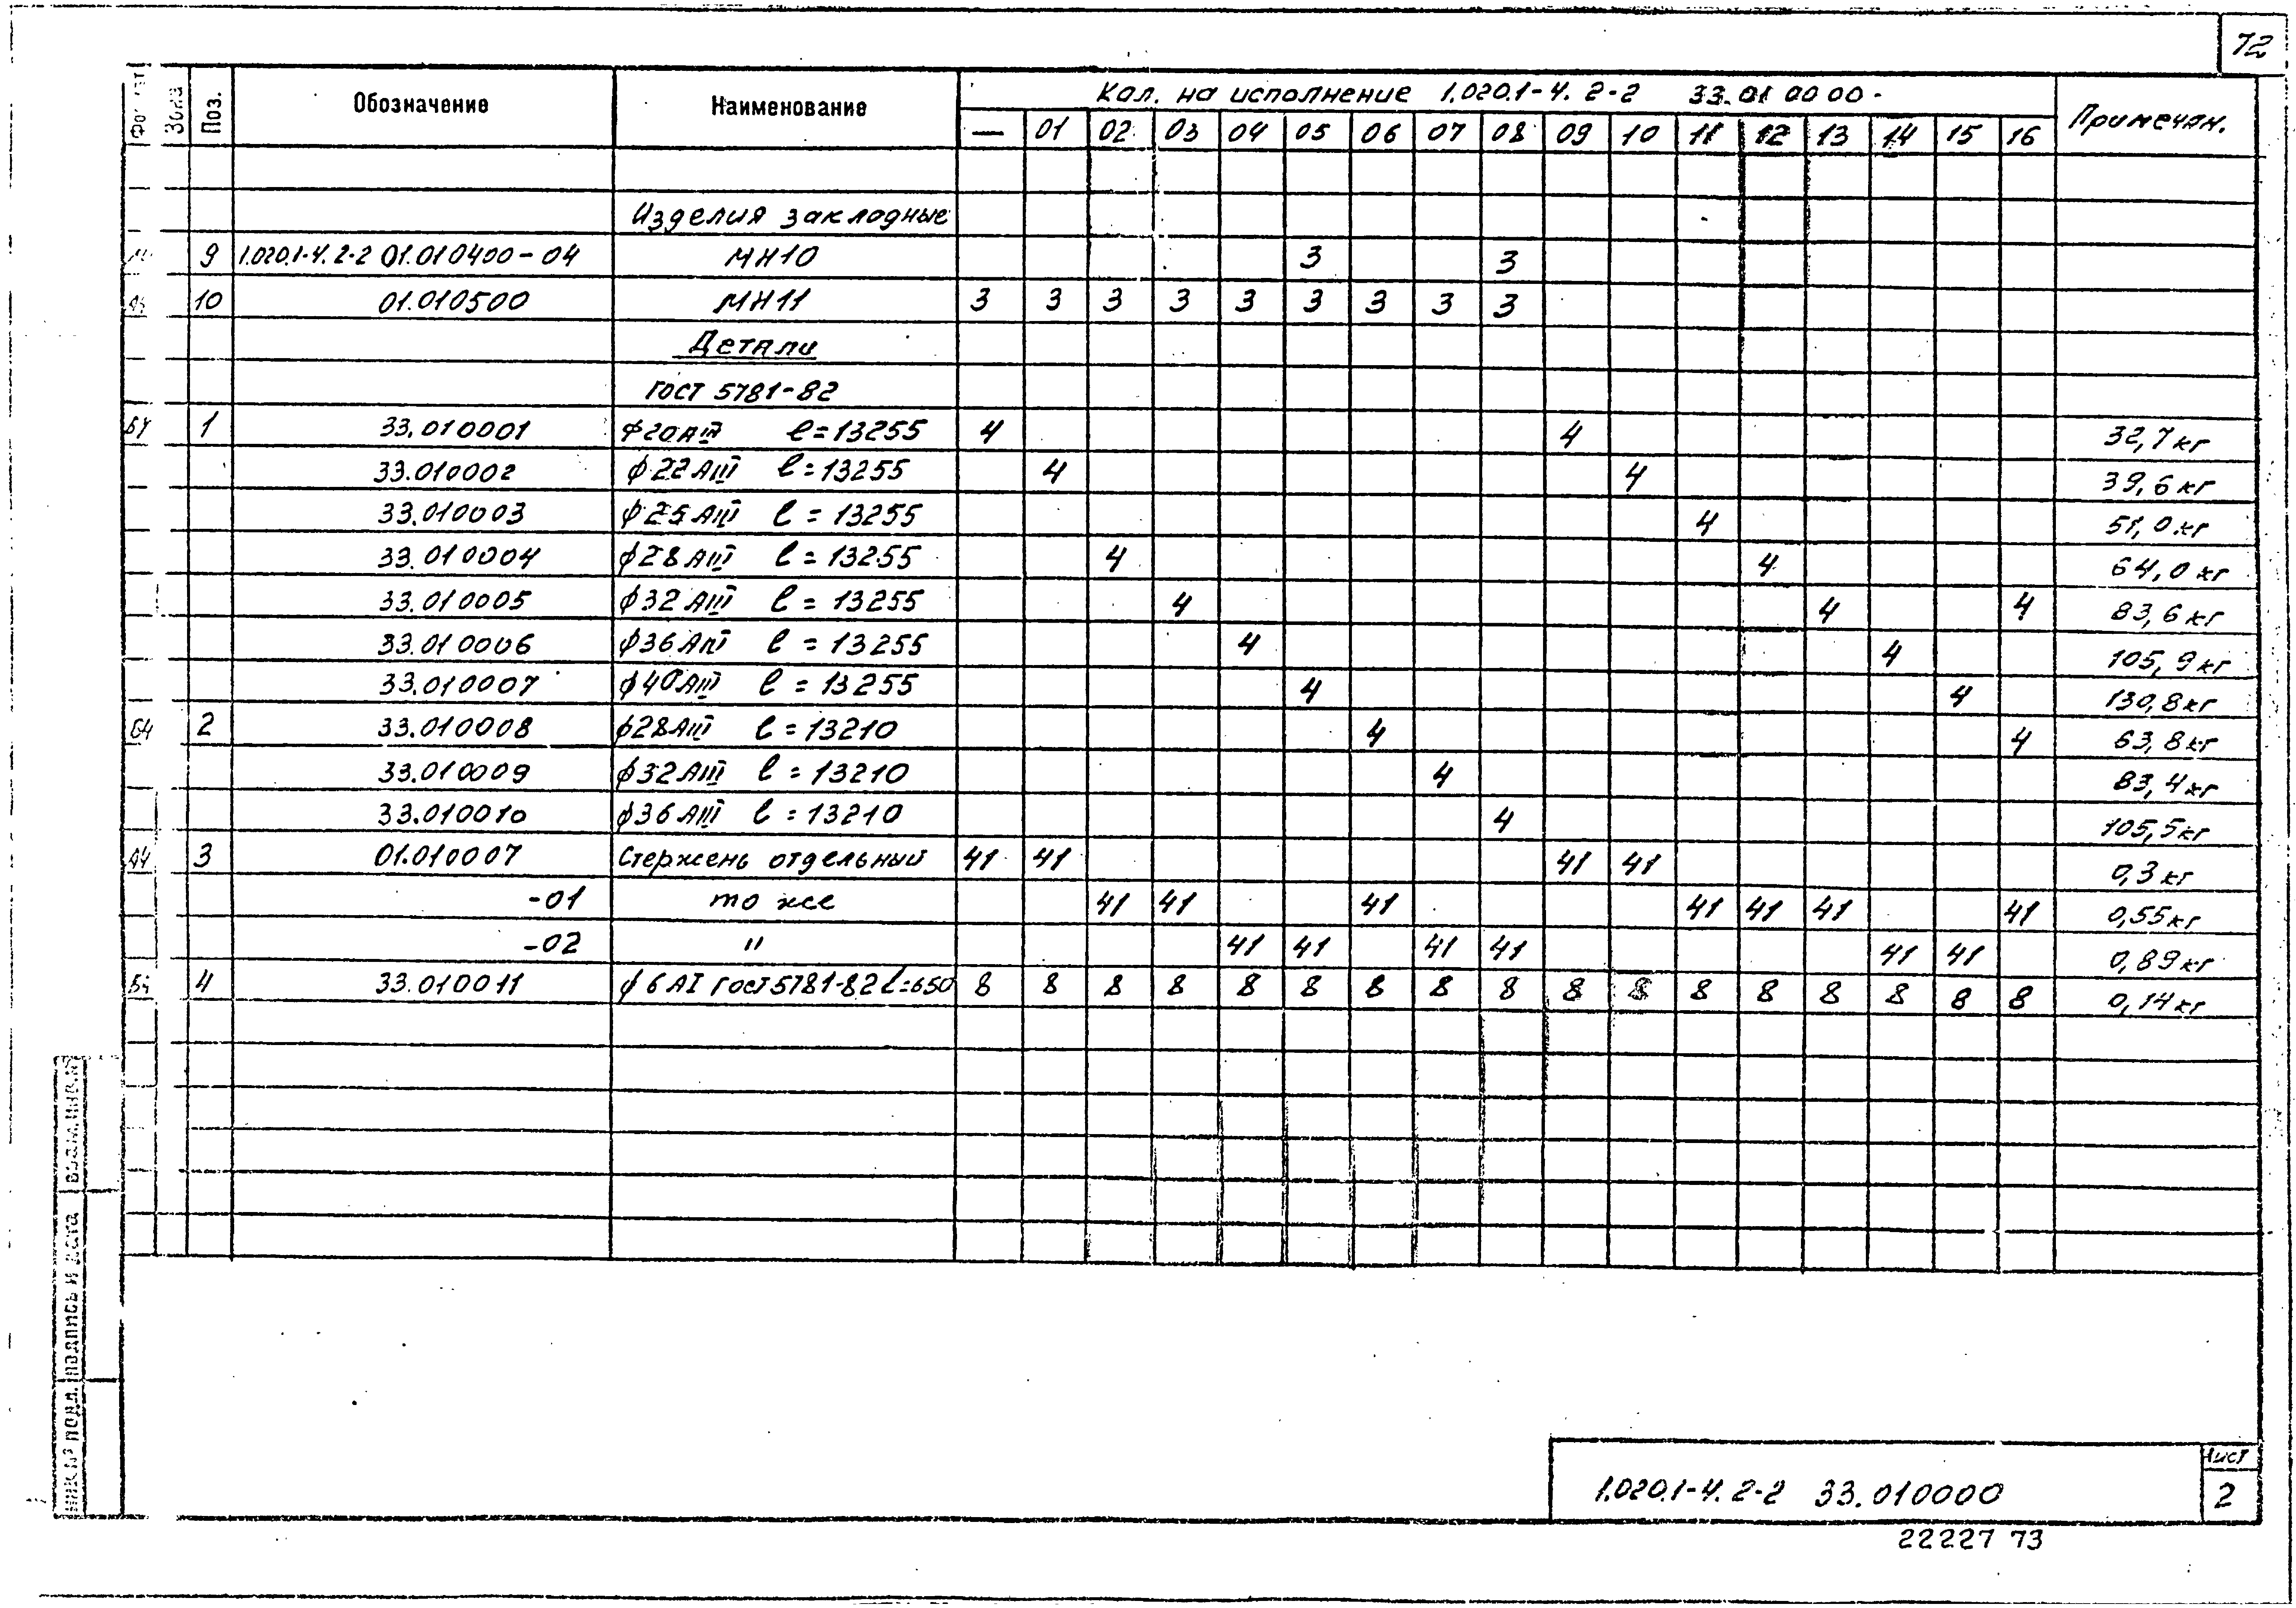 72
Зона Поз. Обозначение Наименование Кол. на исполнение 1.020.1-4. 2-2 33.01 00 00 - Примечан.
— 01 02 03 04 05 06 07 08 09 10 11 12 13 14 15 16
Изделия закладные
9 1.020.1-4. 2-2 01.010400-04 МН10 3 3
10 01.010500 МН11 3 3 3 3 3 3 3 3 3
Детали
ГОСТ 5781-82
БЧ 1 33.010001 ϕ20АIII ℓ=13255 4 4 32,7кг
33.010002 ϕ22АIII ℓ=13255 4 4 39,6кг
33.010003 ϕ25АIII ℓ=13255 4 51,0кг
33.010004 ϕ28АIII ℓ=13255 4 4 64,0кг
33.010005 ϕ32АIII ℓ=13255 4 4 4 83,6кг
33.010006 ϕ36АIII ℓ=13255 4 4 105,9кг
33.010007 ϕ40АIII ℓ=13255 4 4 130,8кг
БЧ 2 33.010008 ϕ28АIII ℓ=13210 4 4 63,8кг
33.010009 ϕ32АIII ℓ=13210 4 83,4кг
33.010010 ϕ36АIII ℓ=13210 4 105,5кг
А4 3 01.010007 Стержень отдельный 41 41 41 41 0,3кг
-01 то же 41 41 41 41 41 41 41 0,55кг
-02 " 41 41 41 41 41 41 0,89кг
БЧ 4 33.010011 ϕ6АI ГОСТ5781-82 ℓ=650 8 8 8 8 8 8 8 8 8 8 8 8 8 8 8 8 8 0,14кг
Подпись и дата
1.020.1-4. 2-2 33.010000
Лист
2
22227 73